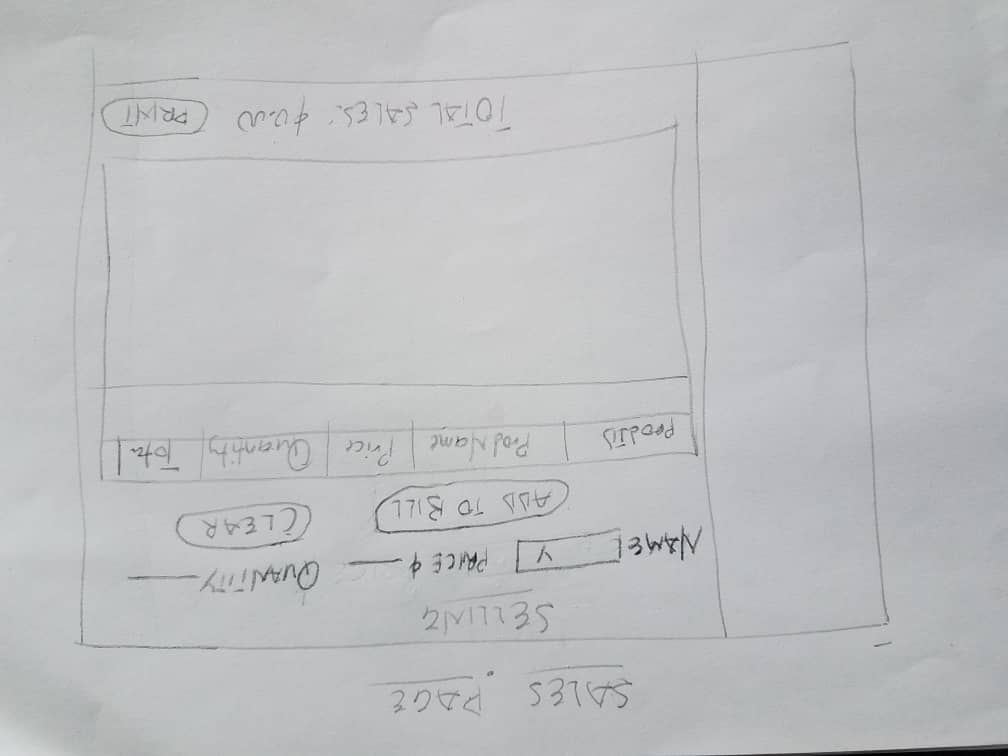 SALES PAGE
SELLING
NAME PRICE $ QUANTITY
ADD TO BILL CLEAR
ProdID ProdName Price Quantity Total
TOTAL SALES: $0.00 PRINT